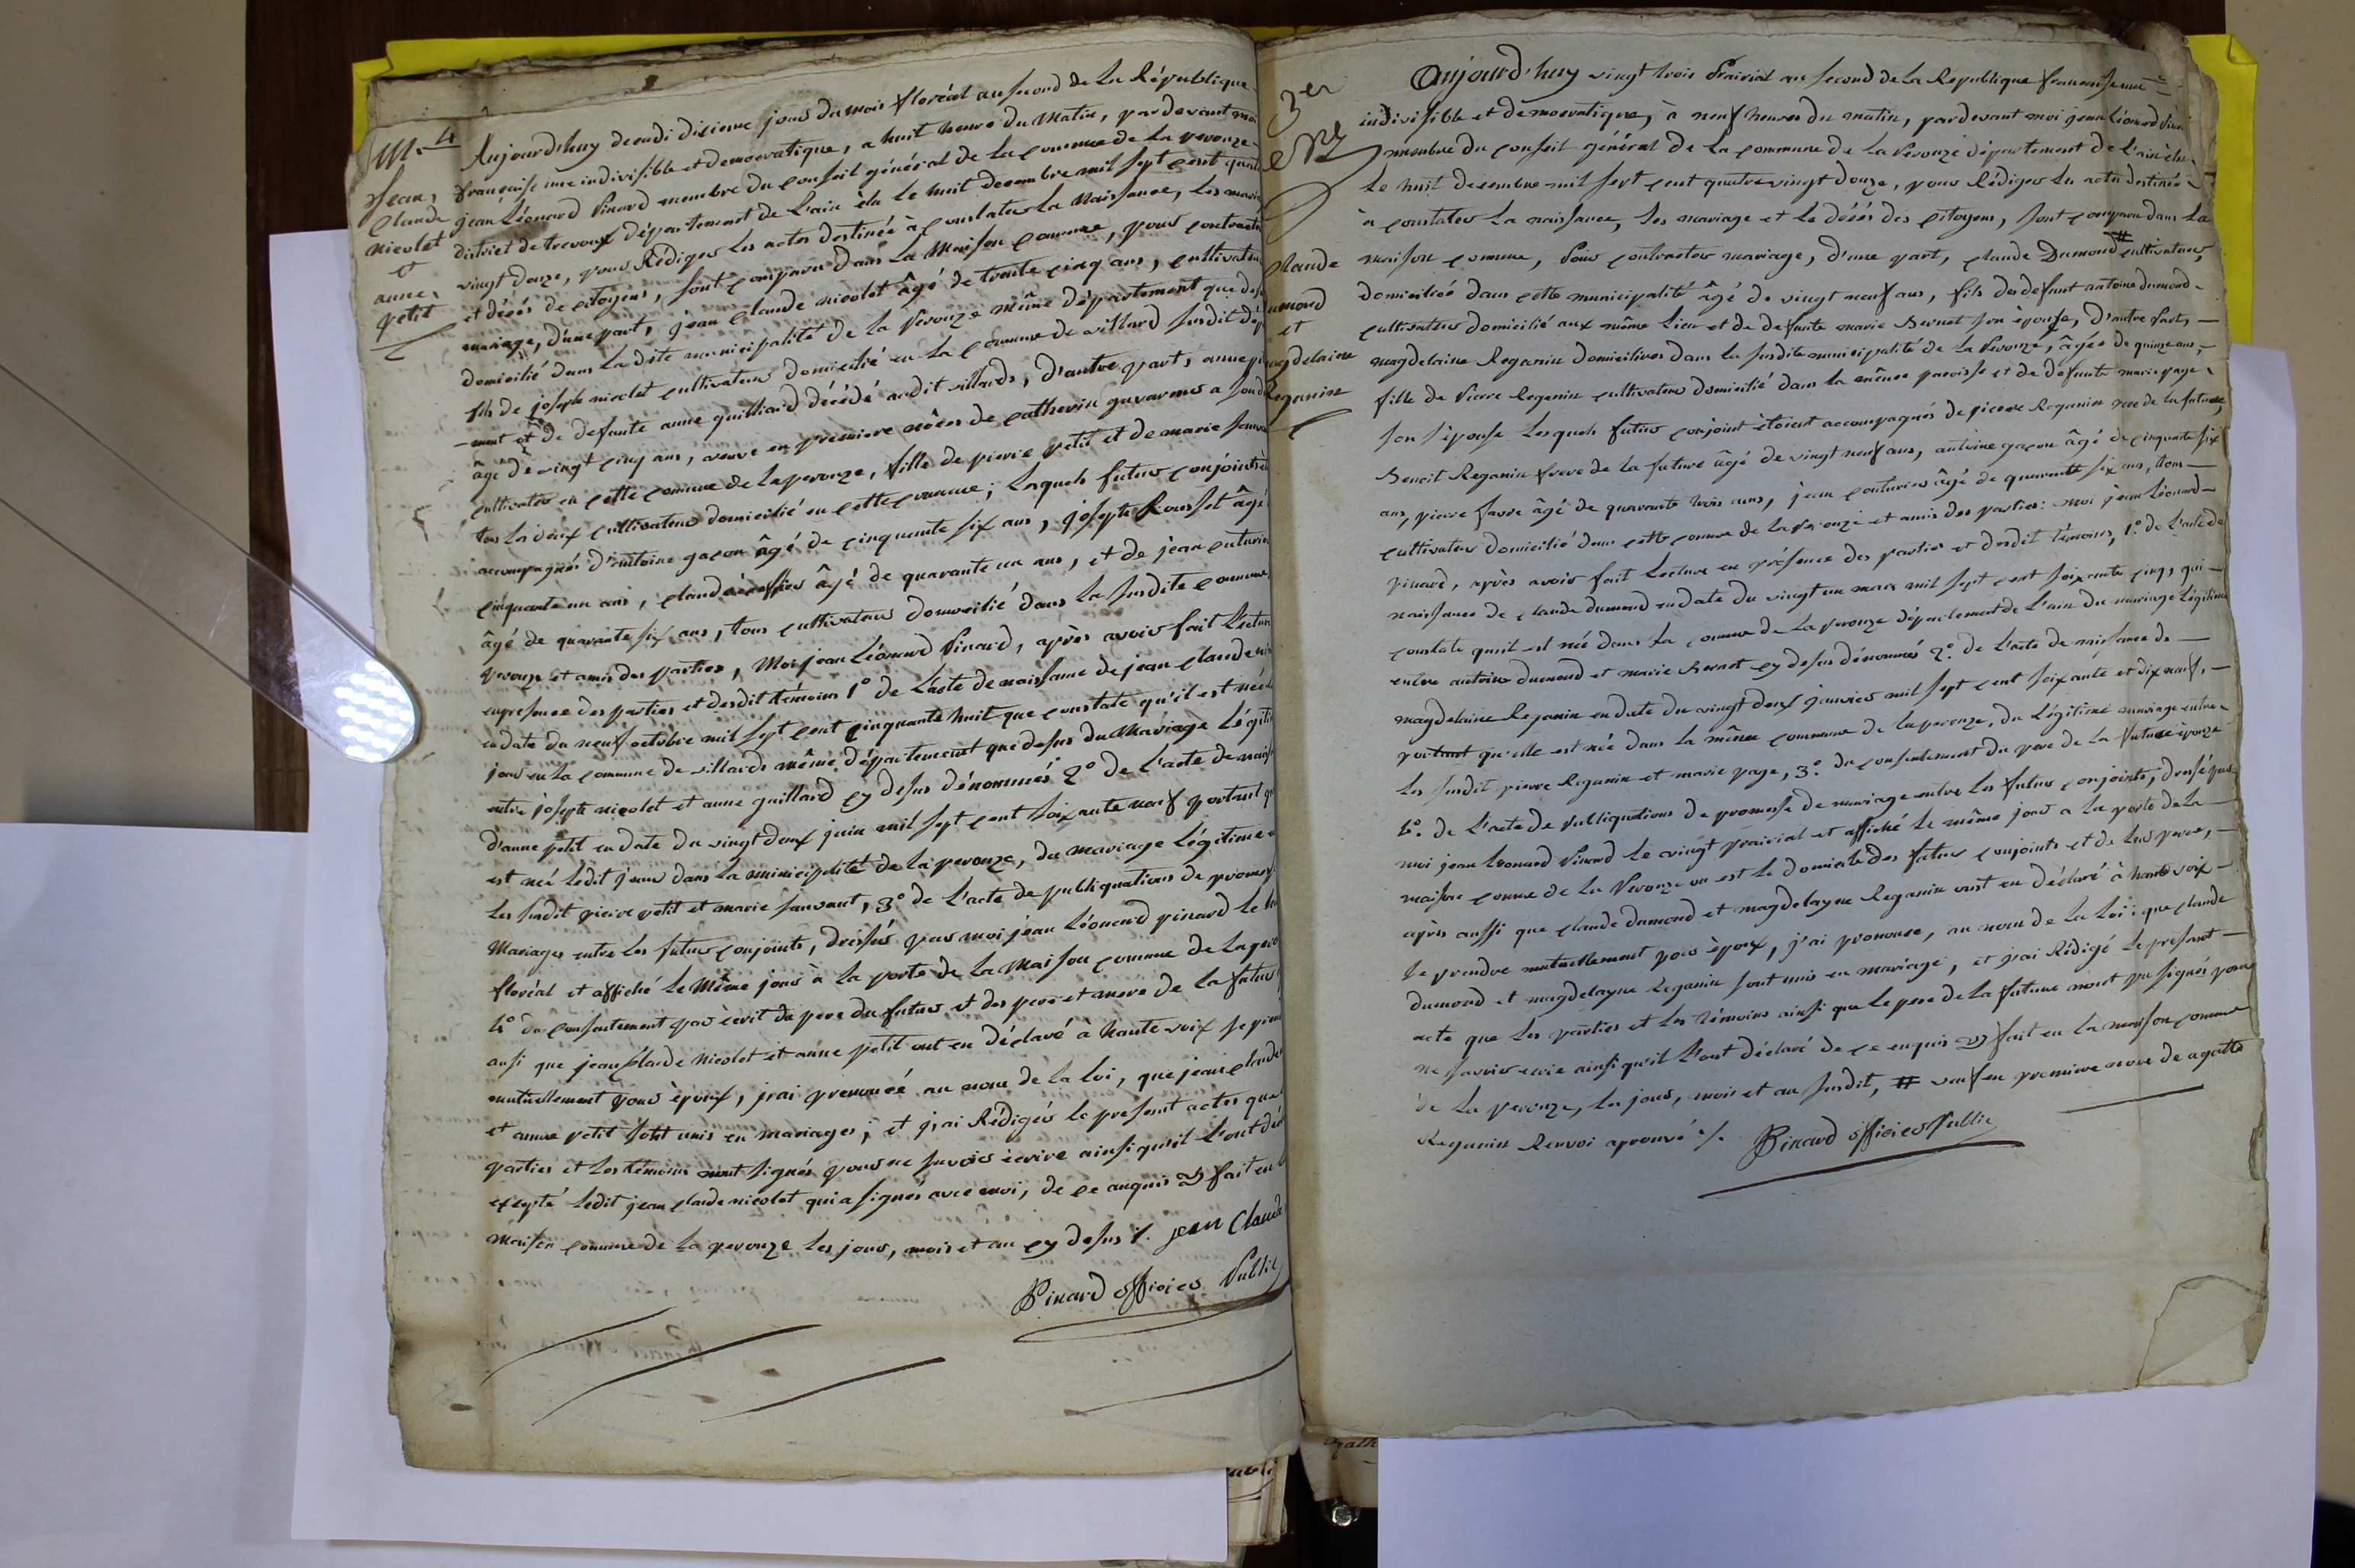 M. 4
Jean,
Claude
nicolet
et
anne,
petit
Aujourd'huy decadi dixieme jour du mois floréal an second de la République
française une indivisible et democratique, a huit heures du Matin, par devant moi
jean Léonard Pinard membre du Conseil général de la commune de La perouze
district de trevoux département de L'ain élu le huit decembre mil sept cent quatre
vingt douze, pour Rédiger les actes destinée à constater La Naissance, les mariage
et décés de citoyens, sont comparu dans La Maison commune, pour contracter
mariage, d'une part, jean Claude nicolet âgé de trente cinq ans, cultivateur
domicilié dans La dite municipalité de la Perouze même département que dessus
fils de joseph nicolet cultivateur domicilié en La commune de villard susdit dép
-ment et de defunte anne guilliard décédé audit villards, d'autre part, anne pe
âgé de vingt cinq ans, veuve en premiere nôces de catherin gavarons a son d
cultivateur en cette commune de la perouze, fille de pierre petit et de marie sauva
tous les deux cultivateur domicilié en cette commune; Lesquels futur conjoints
accompagnés d'antoine gaçon âgé de cinquante six ans, joseph Rousset âgé
cinquante un ans, Claude âgé de quarante un ans, et de jean cuturier
âgé de quarante six ans, tous cultivateur domicilié dans La susdite commune
perouze et amis des parties, Moi jean Léonard Pinard, après avoir fait Lecture
en presence des parties et desdit témoins 1° de L'acte de naissance de jean claude ni
en date du neuf octobre mil sept cent cinquante huit que constate qu'il est née
jour en La commune de villards même département que dessus du Mariage Légiti
entre joseph nicolet et anne guillard cy dessus dénommés 2° de L'acte de naiss
d'anne petit en date du vingt deux juin mil sept cent soixante neuf portant q
est née Ledit jour dans La municipalité de La perouze, du mariage Légitime e
Les susdit pierre petit et marie sauvant, 3° de L'acte de publiquations de promesse
Mariages entre les futur conjoints, dressés par moi jean Léonard pinard Le
floréal et affiché le Même jour à La porte de La Maison commune de La pero
4° du consentement par ècrit du pere du futur et des pere et mere de La futur
ausi que jean Claude Nicolet et anne petit ont en déclaré à haute voix se pren
mutuellement pour époux, j'ai prononcé au nom de la loi, que jean claude
et anne petit sont unis en mariages; et j'ai Rédiger le present actes que
parties et Les témoins n'ont signés pour ne savoir écrire ainsi qu'il L'ont dé
excepté Ledit jean claude nicolet qui a signés avec moi, de ce anquis fait en
Maison commune de la perouze Les jour, mois et an cy dessus /. jean Claude
Pinard officier Public
3er
Claude
umond
et
agdelaine
Reganin
Aujourd'huy vingt trois Prairial an second de La Republique francaise une
indivisible et démocratique, à neuf heures du matin, par devant moi jean Léonard Pinard
membre du conseil général de La commune de La Perouze département de L'ain élu
Le huit decembre mil sept cent quatre vingt douze, pour Rédiger les actes destinée
à constater La naissance, Les mariage et Le décés des citoyens, sont comparu dans La
maison commune, Pour contracter mariage, d'une part, Claude Dumond # cultivateur,
domiciliée dans cette municipalité âgé de vingt neuf ans, fils de defunt antoine dumond
cultivateur domicilié aux même Lieu et de defunte marie Bernet son épouse, D'autre part,
magdelaine Reganin domiciliée dans La susdite municipalité de La Perouze, âgée de quinze ans,
fille de Pierre Reganin cultivateur domicilié dans La même paroisse et de defunte marie page
son s'épouse Lesquels futur conjoint étoient accompagnés de pierre Reganin pere de la future,
Benoit Reganin frere de La future âgé de vingt neuf ans, antoine gaçon âgé de cinquante six
ans, pierre favre âgé de quarante trois ans, jean couturier âgé de quarante six ans, tous
cultivateur domicilié dans cette commune de La Perouze et amis des parties: moi jean Léonard
pinard, après avoir fait Lecture en présence des partie et desdit témoins, 1°. de L'acte de
naissance de claude dumond en date du vingt un mars mil sept cent soixante cinq, qui
constate quil est née dans La commune de La perouze département de L'ain du mariage Légitime
entre antoine dumond et marie Bernet cy dessus dénommés 2°. de L'acte de naissance de
magdelaine Reganin en date du vingt deux janvier mil sept cent soixante et dix neuf,
portant qu'elle est née dans La même commune de La perouze, du Légitime mariage entre
Les susdit pierre Reganin et marie page, 3°. du consentement du pere de La future épouze
4°. de L'acte de Publiquations de promesse de mariage entre Les futur conjoints, dressé par
moi jean Leonard Pinard Le vingt prairial et affiché Le même jour a La porte de La
maison comune de La Perouze ou est Le domicile des futur conjoints et de leur peres,
après aussi que claude dumond et magdelayne Reganin ont en déclaré à haute voix
se prendre mutuellement pour époux, j'ai prononcé, au nom de La Loi: que claude
dumond et magdelayne Reganin sont unis en mariage, et j'ai Rédigé le present
acte que Les parties et Les témoins ainsi que Le pere de La future n'ont pu signés pour
ne savoir ecrire ainsi qu'il L'ont déclaré de ce enquis fait en La maison comune
de La perouze, Les jour, mois et an susdit, # veuf en premiere noce de agatte
Reganin Renvoi aprouvé /. Pinard officier Public